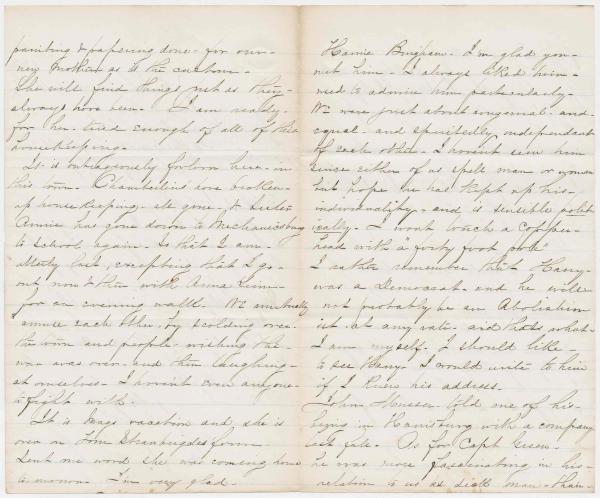 painting & papering done - for our -
new Mother as to the custom -
She will find things just as they -
always have been - I am ready -
for her - tired enough of all of this
housekeeping -
It is outrageously forlorn here - in
this town - Chamberlins have broken -
up housekeeping - are gone - & sister
Annie has gone down to Mechanicsburg
to school again - So that I am -
utterly lost, excepting that I go -
out now & then with Anna
for an evening walk - We
amuse each other, by scolding over -
the town and people - wishing the -
war was over - and then laughing -
at ourselves - I havent even anyone -
to fight with -
It is Mags vacation and she is
over on Tom farm
Sent me word she was coming down
to morrow - I'm very glad -
Harrie - I'm glad you -
met him - I always liked him -
used to admire him particularly -
We were just about congenial - and -
equal - and spiritedly independent
of each other - I havent seen him
since either of us spelt man or woman
but hope he has kept up his -
individuality - and is sensible polit
ically - I wont touch a Copper -
head with a forty foot pole"
I rather remember that Harry -
was a Democrat - and he will
not probably be an Abolition
ist - at any rate - and thats what -
I am myself - I should like -
to see Harry - I would write to him
if I knew his address.
John told one of his -
in Harrisburg with a company
As for Capt
he was more fascinating in his -
relation to us as sick man - than -